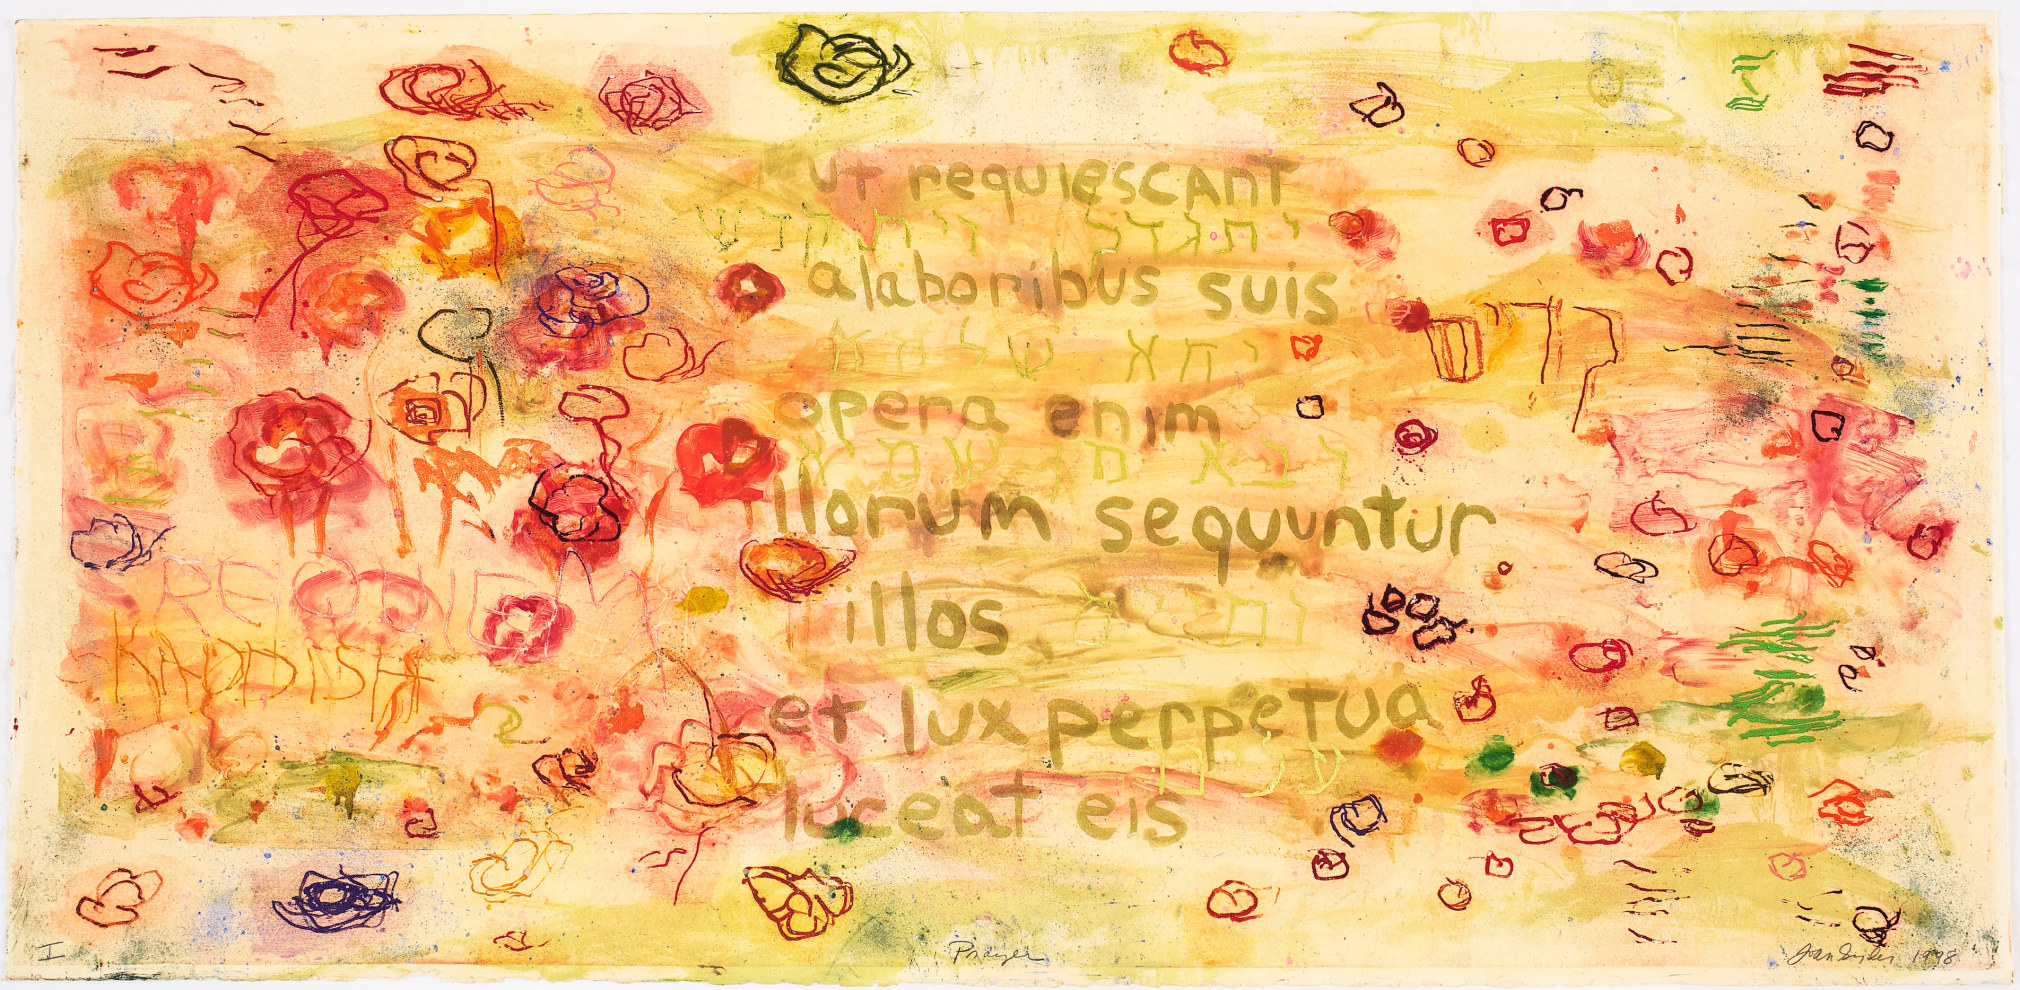 ut requiescant
יתגדל ויתקדש
alaboribus suis
יהא שלמא
opera enim
רבא מן שמיא
illorum sequuntur
REQUIEM
illos וחיים
KADDISH
et lux perpetua
luceat eis
I Prayer Joan Snyder 1998